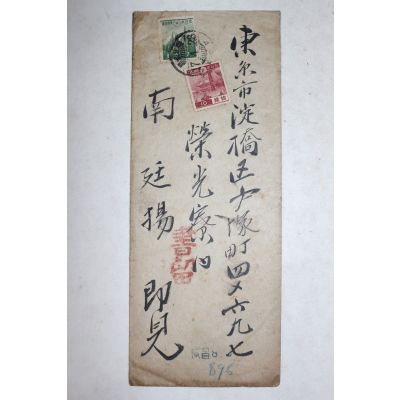 東京市淀橋区戸塚町四ノ六九七
榮光寮内
南廷揚 即見
書留
10
896